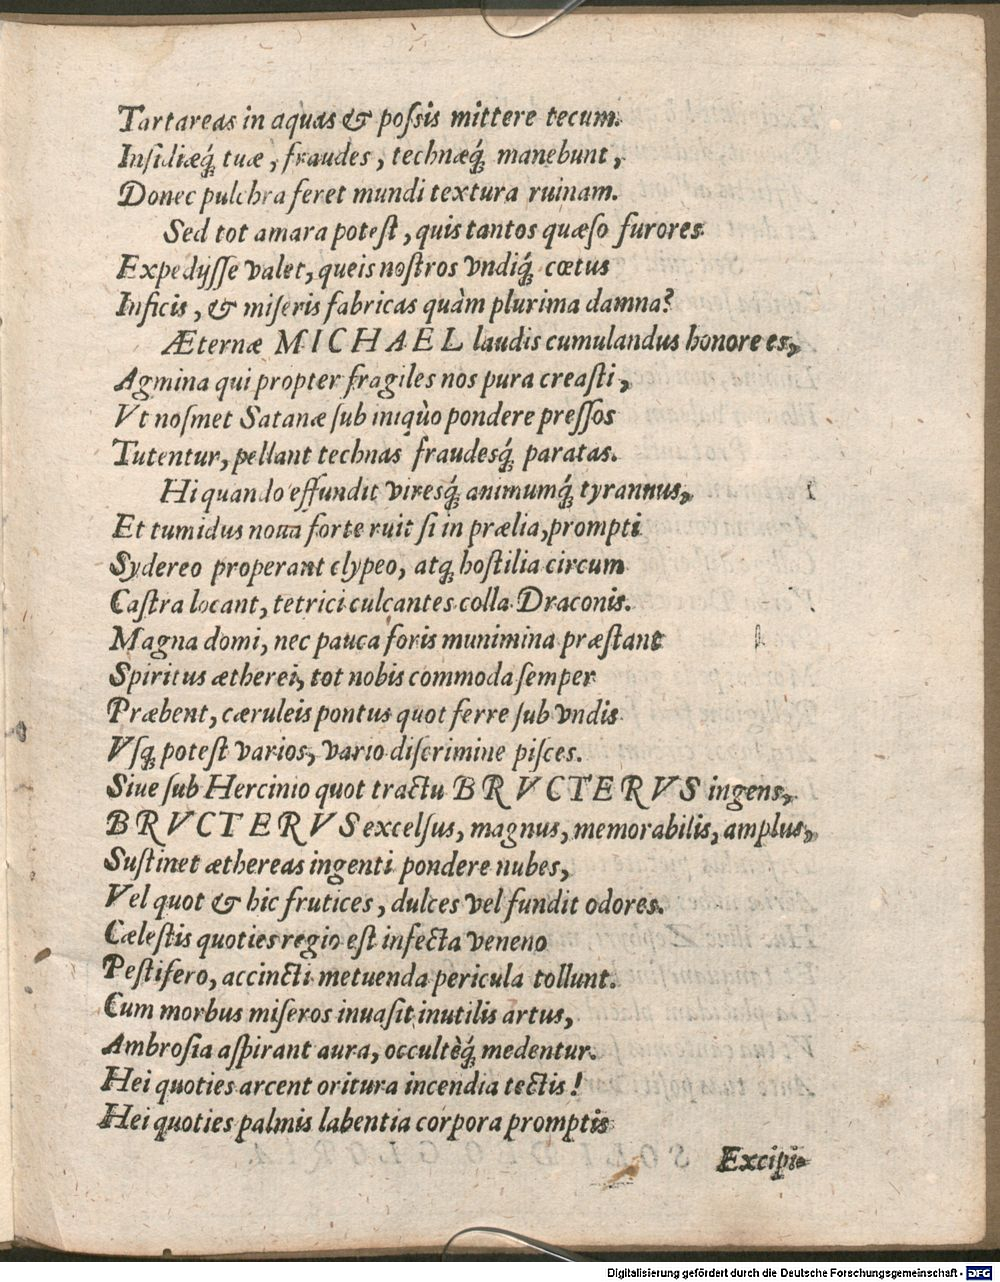 Tartareas in aquas & poſsis mittere tecum.
Inſidiæq́; tuæ, fraudes, technæq́; manebunt,
Donec pulchra feret mundi textura ruinam.
Sed tot amara poteſt, quis tantos quæſo furores
Expedijſſe valet, queis noſtros vndiq́; cœtus
Inficis, & miſeris fabricas quàm plurima damna?
Æternæ MICHAEL laudis cumulandus honore es,
Agmina qui propter fragiles nos pura creaſti,
Vt noſmet Satanæ ſub iniqùo pondere preſſos
Tutentur, pellant technas fraudesq́; paratas.
Hi quando effundit viresq́; animumq́; tyrannus,
Et tumidus noua forte ruit ſi in prælia, prompti
Sydereo properant clypeo, atq; hoſtilia circum
Caſtra locant, tetrici culcantes colla Draconis.
Magna domi, nec pauca foris munimina præſtant
Spiritus ætherei, tot nobis commoda ſemper
Præbent, cæruleis pontus quot ferre ſub vndis
Vſq; poteſt varios, vario diſcrimine piſces.
Siue ſub Hercinio quot tractu BRVCTERVS ingens,
BRVCTERVS excelſus, magnus, memorabilis, amplus,
Suſtinet æthereas ingenti pondere nubes,
Vel quot & hic frutices, dulces vel fundit odores.
Cæleſtis quoties regio eſt infecta veneno
Peſtifero, accincti metuenda pericula tollunt.
Cum morbus miſeros inuaſit inutilis artus,
Ambroſia aſpirant aura, occultèq́; medentur.
Hei quoties arcent oritura incendia tectis!
Hei quoties palmis labentia corpora promptis
Excipi-
Digitalisierung gefördert durch die Deutsche Forschungsgemeinschaft - DFG